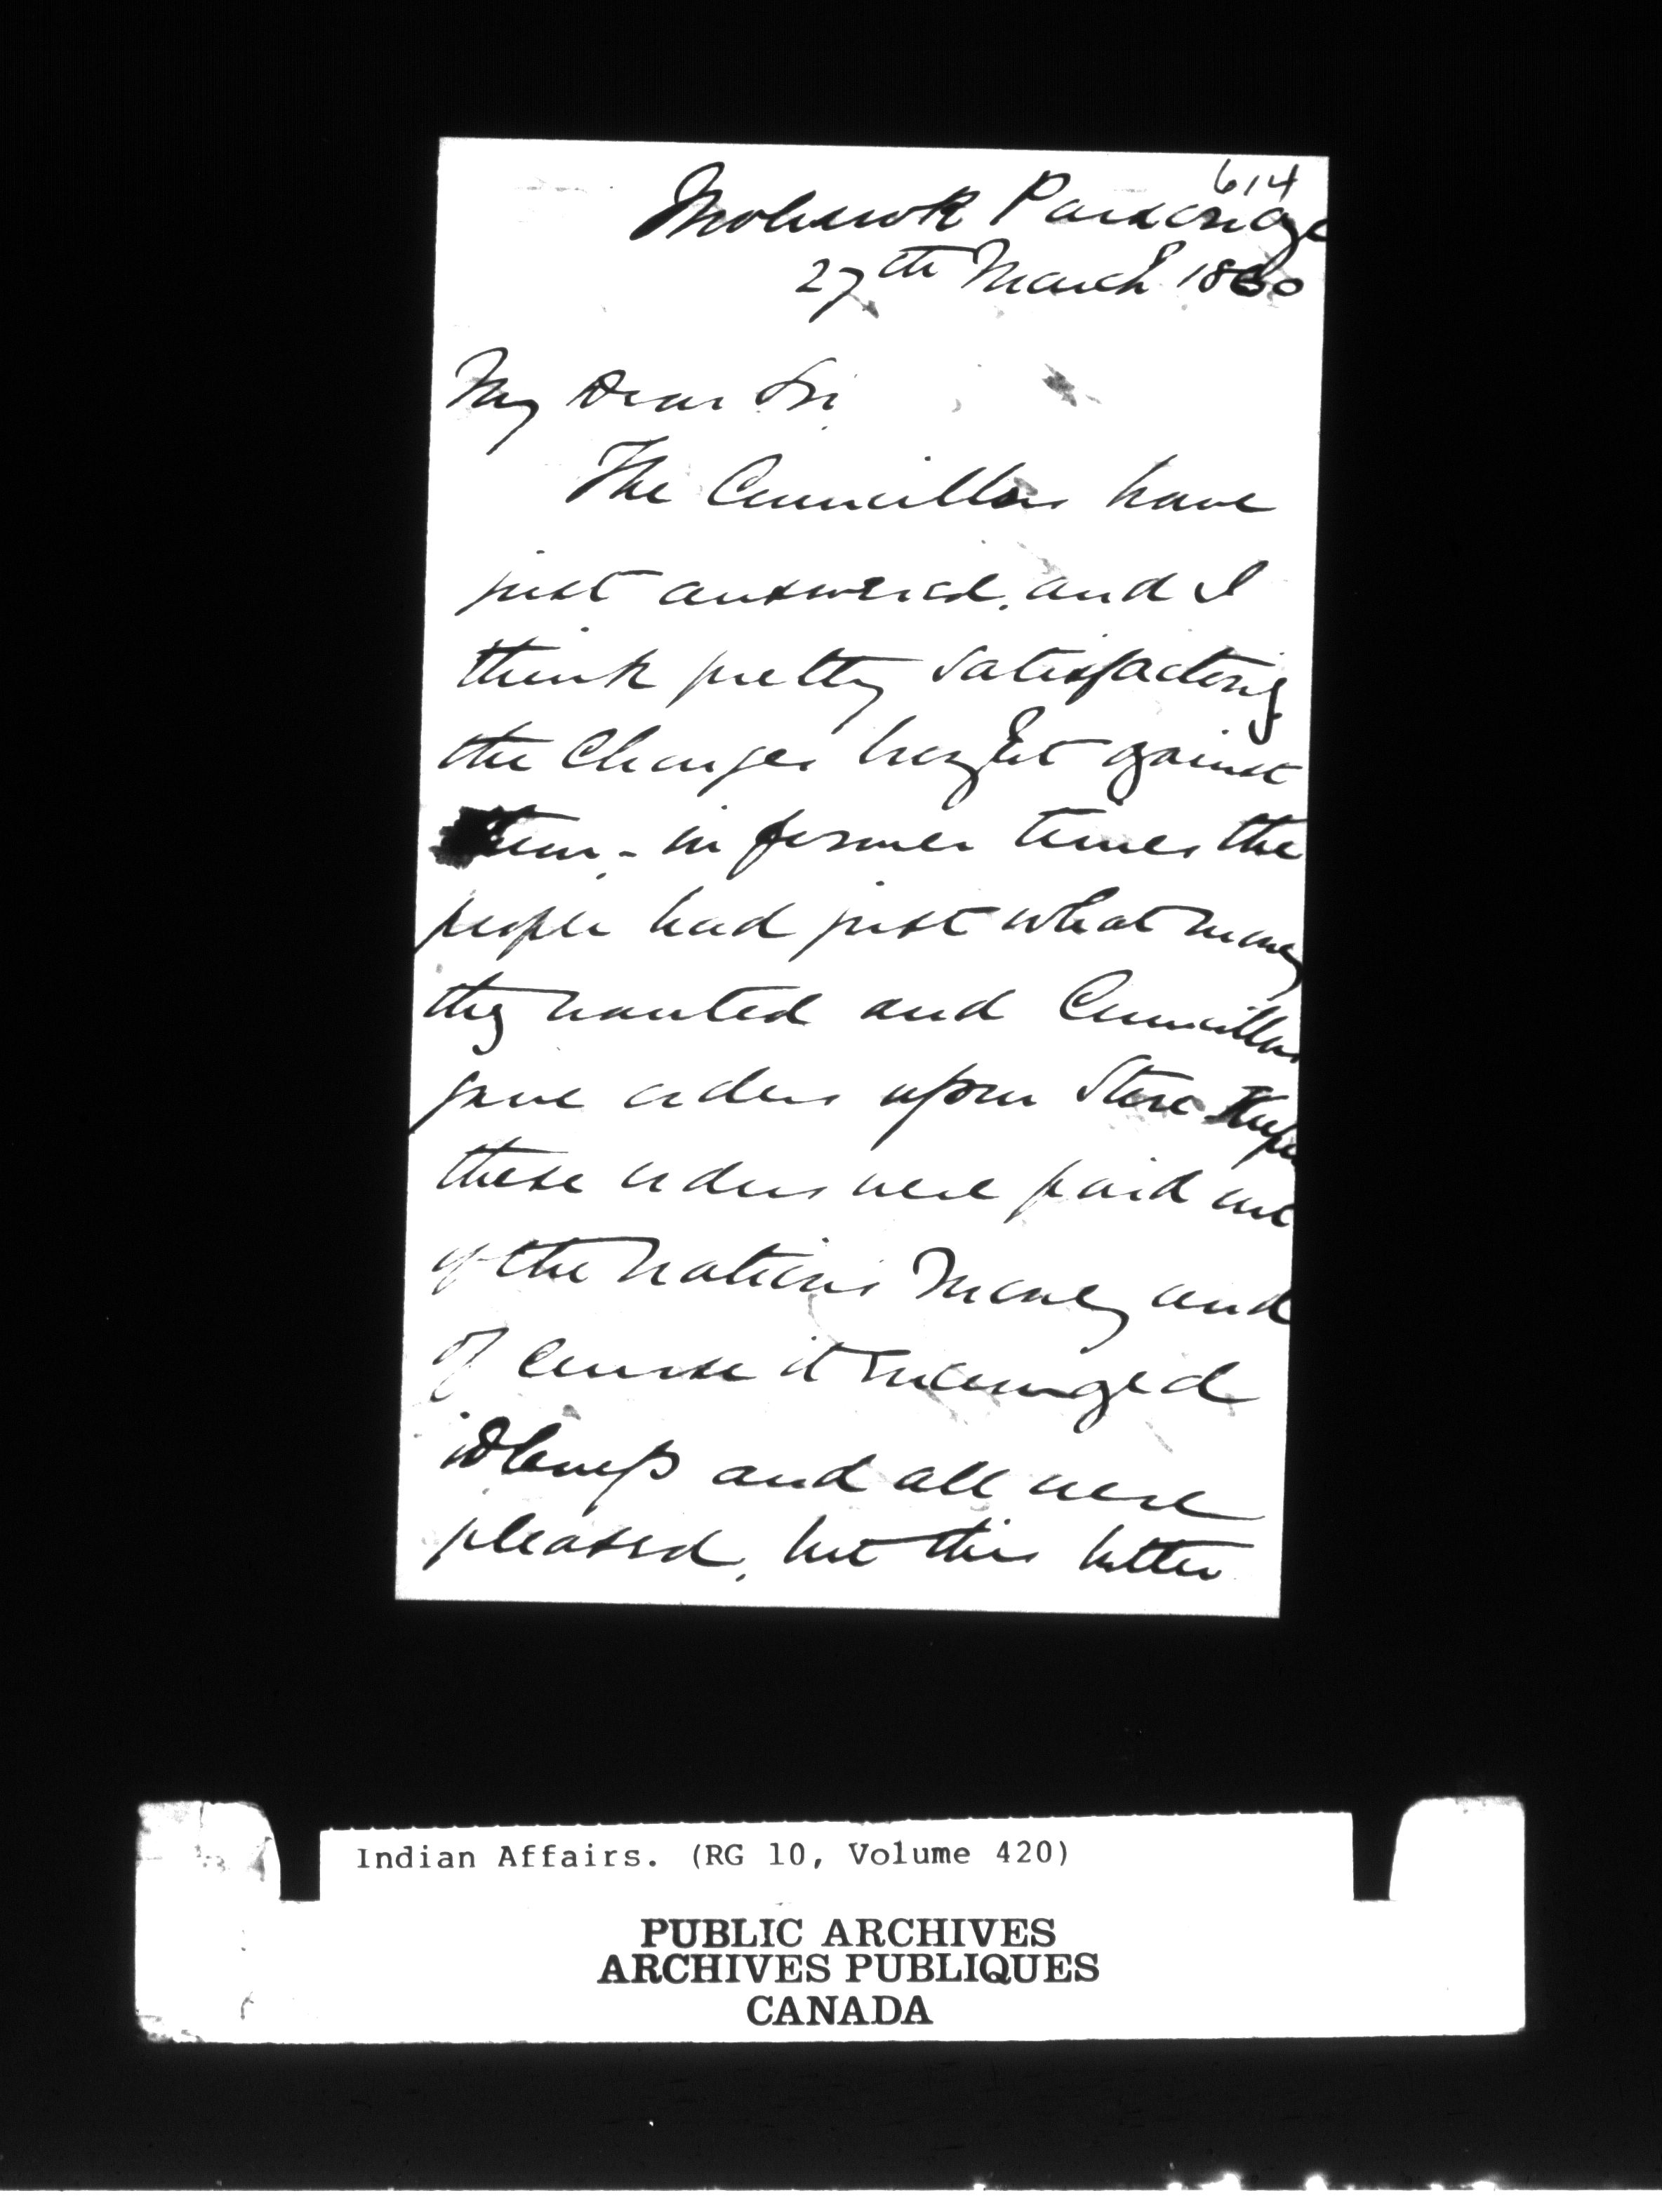 614
Mohawk Parsonage
27th March 1860
My Dear Sir
The Councillors have
just answered, and I
think pretty satisfactory
the Charges brought against
them - in former times the
people had just what money
they wanted and Councillors
gave orders upon Store
these orders were paid out
of the Nations Money and
of course it managed
and all were
pleased, but this latter
Indian Affairs. (RG 10, Volume 420)
PUBLIC ARCHIVES
ARCHIVES PUBLIQUES
CANADA